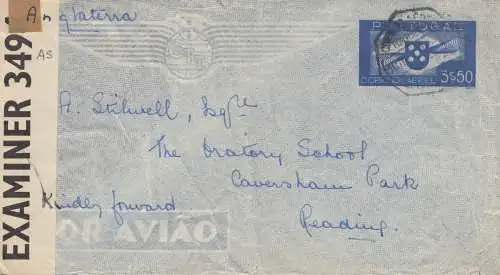 Anglaterra
As
EXAMINER 349
PORTUGAL
CORREIO AEREO 3$50
A. Stilwell, Esqre
The Oratory School
Caversham Park
Kindly forward
Reading.
POR AVIÃO